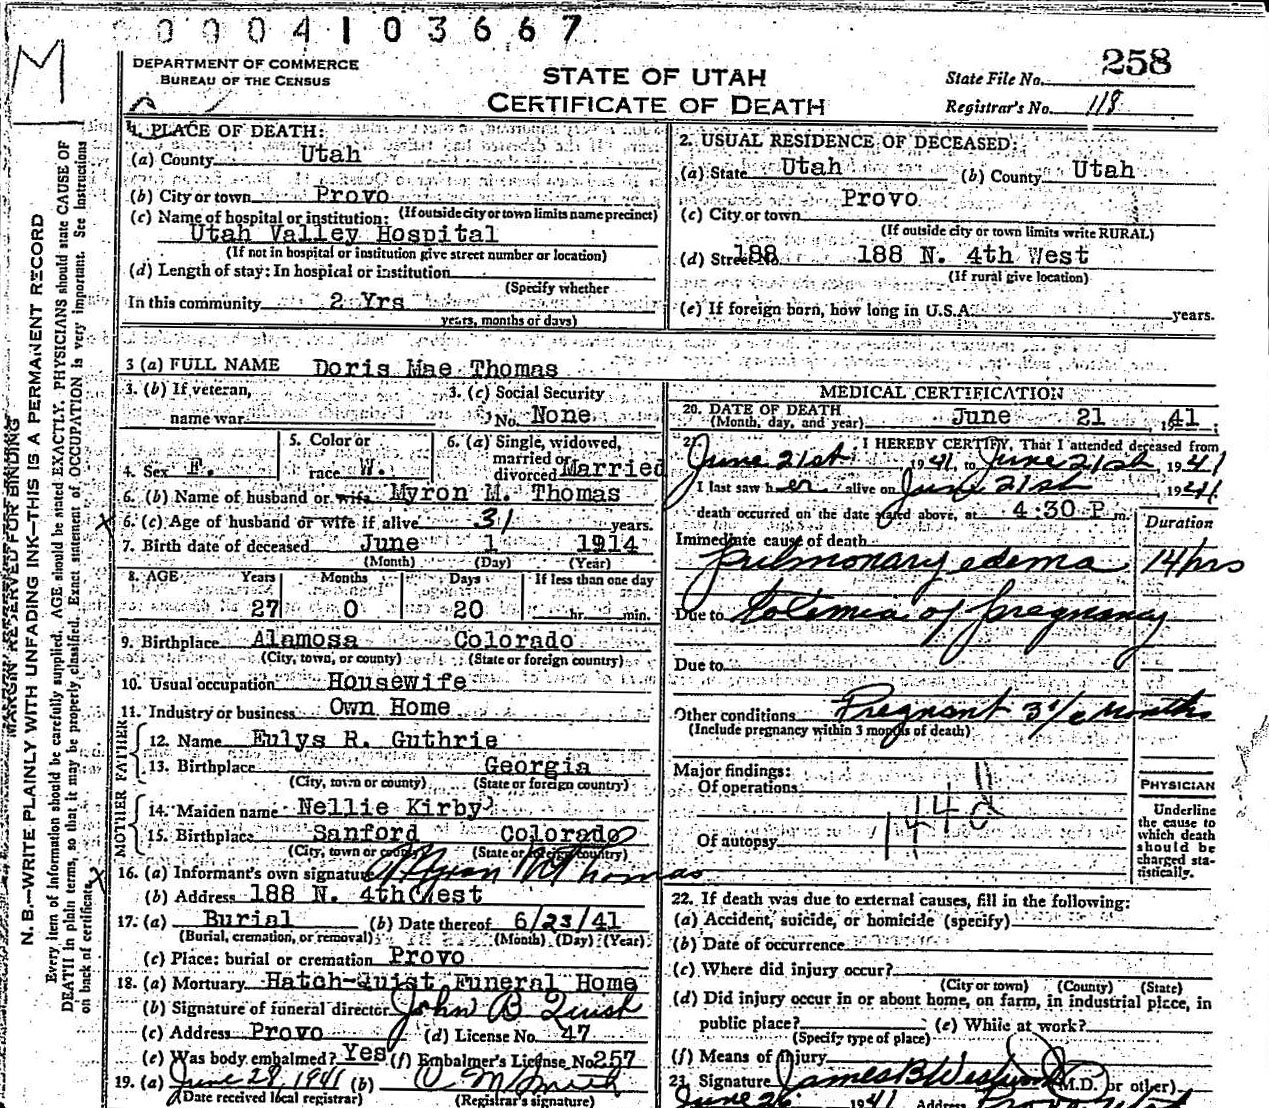 0004103667
M
DEPARTMENT OF COMMERCE
BUREAU OF THE CENSUS
STATE OF UTAH
CERTIFICATE OF DEATH
State File No. 258
Registrar's No. 118
MARGIN RESERVED FOR BINDING
N. B.—WRITE PLAINLY WITH UNFADING INK—THIS IS A PERMANENT RECORD
Every item of information should be carefully supplied. AGE should be stated EXACTLY. PHYSICIANS should state CAUSE OF
DEATH in plain terms, so that it may be properly classified. Exact statement of OCCUPATION is very important. See instructions
on back of certificate.
1. PLACE OF DEATH:
(a) County Utah
(b) City or town Provo
(If outside city or town limits name precinct)
(c) Name of hospital or institution:
Utah Valley Hospital
(If not in hospital or institution give street number or location)
(d) Length of stay: In hospital or institution
(Specify whether
In this community 2 Yrs
years, months or days)
2. USUAL RESIDENCE OF DECEASED:
(a) State Utah (b) County Utah
(c) City or town Provo
(If outside city or town limits write RURAL)
(d) Street No. 188 188 N. 4th West
(If rural give location)
(e) If foreign born, how long in U.S.A. years.
3 (a) FULL NAME Doris Mae Thomas
3. (b) If veteran,
name war
3. (c) Social Security
No. None
4. Sex F.
5. Color or
race W.
6. (a) Single, widowed,
married or
divorced Married
6. (b) Name of husband or wife Myron M. Thomas
6. (c) Age of husband or wife if alive 31 years.
7. Birth date of deceased June 1 1914
(Month) (Day) (Year)
8. AGE Years Months Days If less than one day
27 0 20 hr. min.
9. Birthplace Alamosa Colorado
(City, town, or county) (State or foreign country)
10. Usual occupation Housewife
11. Industry or business Own Home
FATHER
12. Name Eulys R. Guthrie
13. Birthplace Georgia
(City, town or county) (State or foreign country)
MOTHER
14. Maiden name Nellie Kirby
15. Birthplace Sanford Colorado
(City, town or county) (State or foreign country)
16. (a) Informant's own signature Myron M Thomas
(b) Address 188 N. 4th West
17. (a) Burial (b) Date thereof 6/23/41
(Burial, cremation, or removal) (Month) (Day) (Year)
(c) Place: burial or cremation Provo
18. (a) Mortuary Hatch-Quist Funeral Home
(b) Signature of funeral director John B Quist
(c) Address Provo (d) License No. 47
(e) Was body embalmed? Yes (f) Embalmer's License No. 257
19. (a) June 28, 1941 (b) O M Smith
(Date received local registrar) (Registrar's signature)
MEDICAL CERTIFICATION
20. DATE OF DEATH June 21, 41
(Month, day, and year)
21. I HEREBY CERTIFY, That I attended deceased from
June 21st 1941, to June 21st, 1941
I last saw her alive on June 21st 1941.
death occurred on the date stated above, at 4:30 P m.
Duration
Immediate cause of death
pulmonary edema 14 hrs
Due to toxemia of pregnancy
Due to
Other conditions Pregnant 3 1/2 months
(Include pregnancy within 3 months of death)
Major findings:
Of operations
144d
Of autopsy
PHYSICIAN
Underline
the cause to
which death
should be
charged sta-
tistically.
22. If death was due to external causes, fill in the following:
(a) Accident, suicide, or homicide (specify)
(b) Date of occurrence
(c) Where did injury occur?
(City or town) (County) (State)
(d) Did injury occur in or about home, on farm, in industrial place, in
public place? (e) While at work?
(Specify type of place)
(f) Means of injury
23. Signature James B (M.D. or other)
June 26 1941 Address Provo Utah